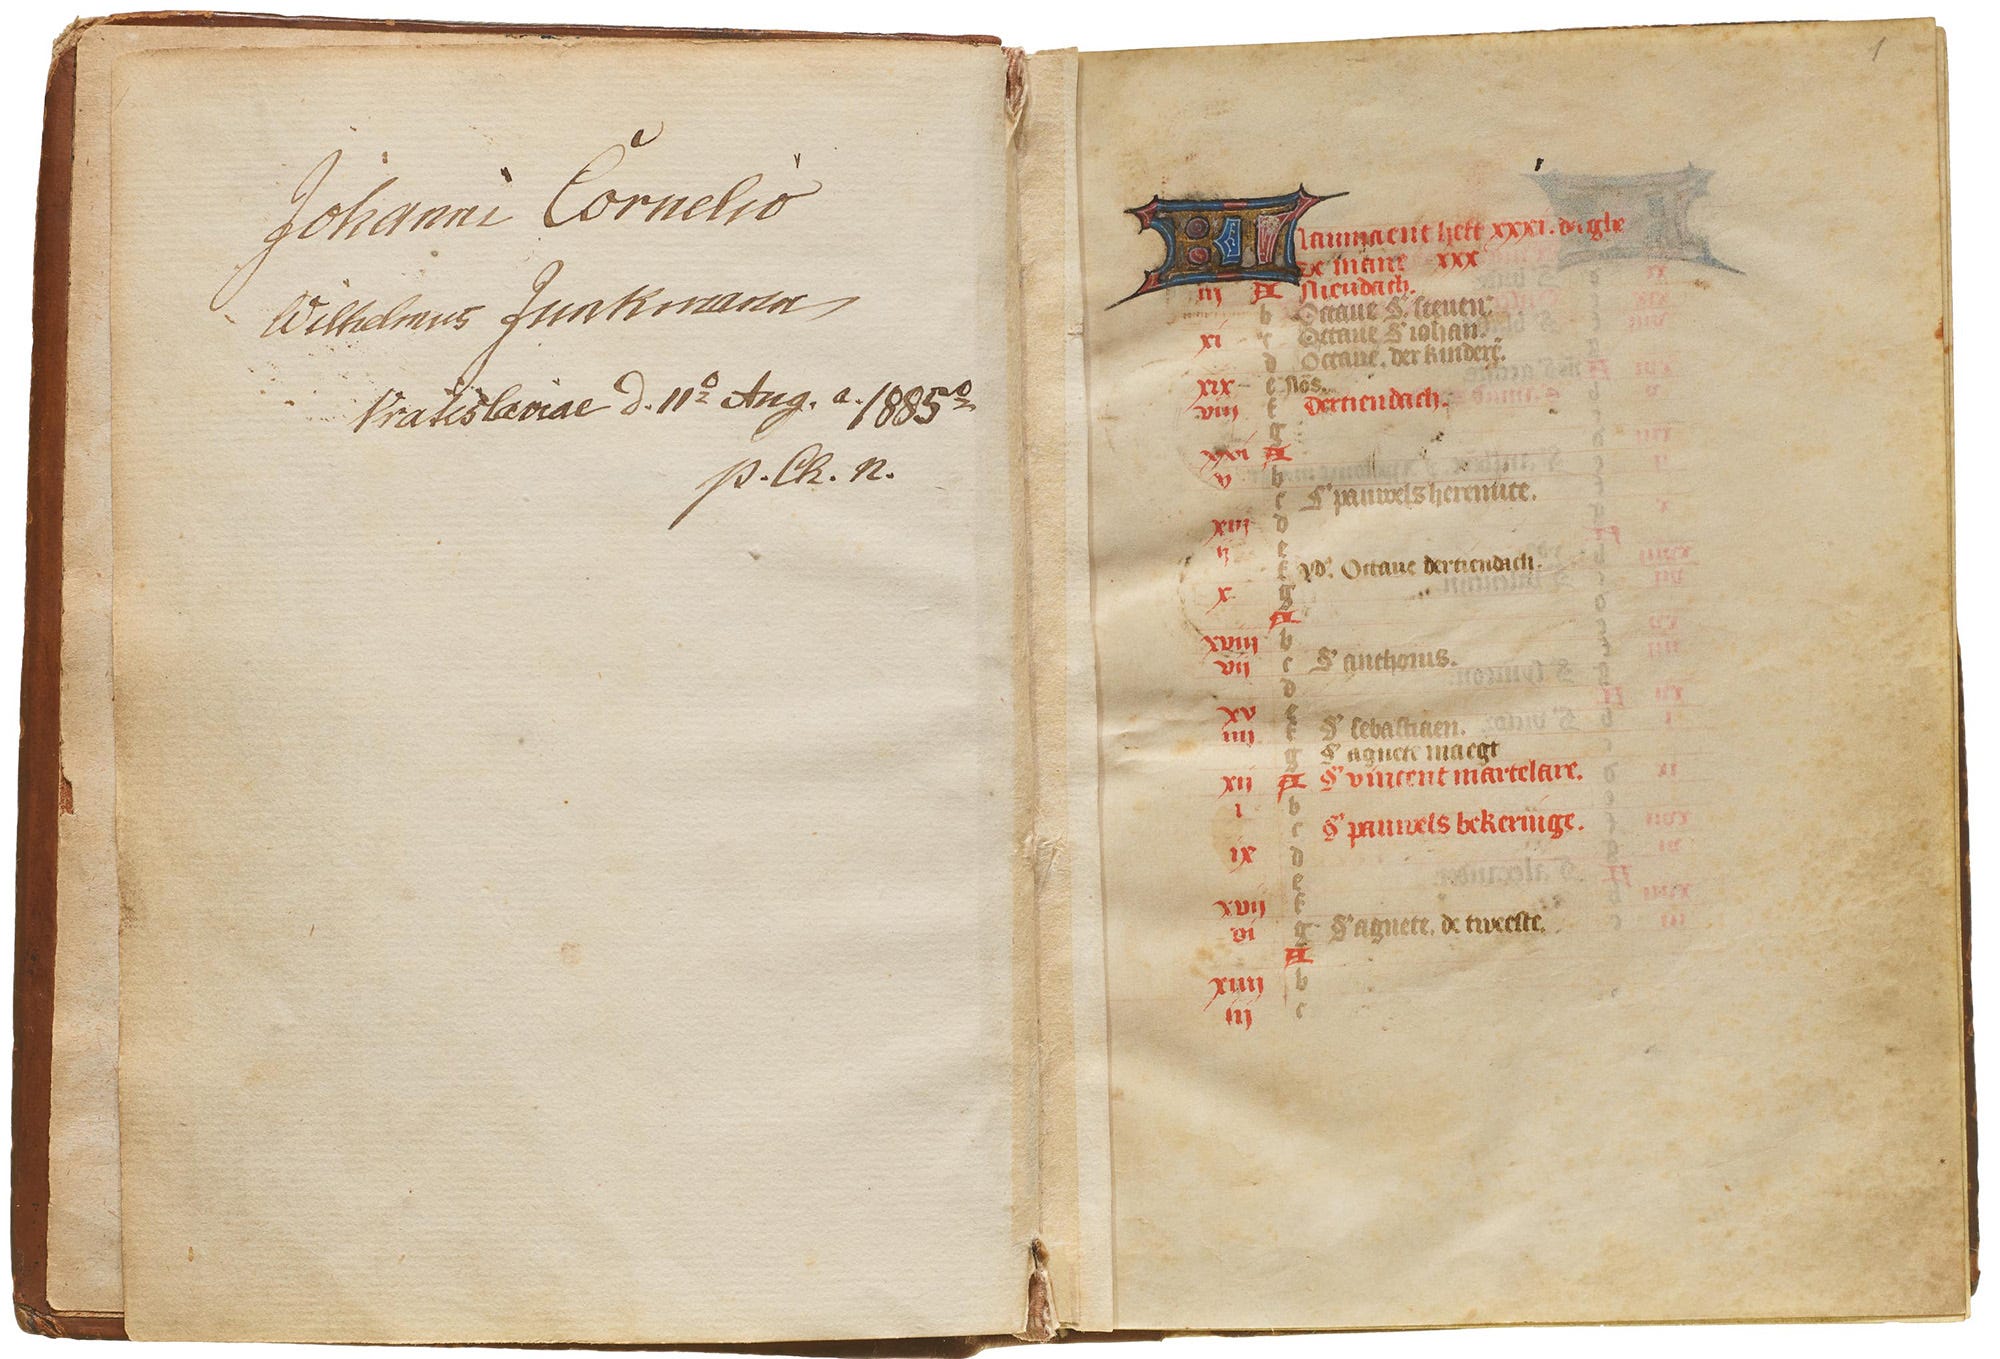 Johanni Cornelio
Wilhelmus Junkmann
Vratislaviae d. 11º Aug. a. 1885º
p. Ch. n.
1
KL Laumaent heft xxxi. daghe
De mane xxx
iij A Niendach.
b Octaue S' steuen.
xi c Octaue S' iohan.
d Octaue. der kinderē.
xix e Noś.
viij f Dertiendach.
g
xvi A
v b
c S' pauwels heremite.
xiij d
ij e
f yd'. Octaue dertiendach.
x g
A
xviij b
vij c S' anthonis.
d
xv e
iiij f S' sebastiaen.
g S' agnete maegt
xij A S' vincent martelare.
i b
c S' pauwels bekeringe.
ix d
e
xvij f
vi g S' agnete. de tweeste.
A
xiiij b
iij c